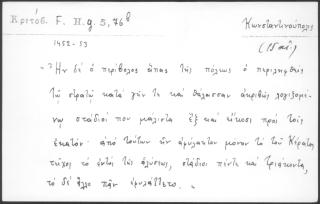 Κριτόβ. F. H. g. 5, 76β
Κωνσταντινούπολις
1452-53
"Ἦν δὲ ὁ περίβολος ἅπας τῆς πόλεως ὁ περιληφθεὶς
τῷ στρατῷ κατὰ γῆν τε καὶ θάλασσαν ἀκριβῶς λογιζομέ-
νῳ στάδιοί που μάλιστα ἓξ καὶ εἴκοσι πρὸς τοῖς
ἑκατόν· ἀπὸ τούτων ἦν ἀφύλακτον μόνον τὸ τοῦ Κέρατος
τεῖχος τὸ ἐντὸς τῆς ἁλύσεως, στάδιοι πέντε καὶ τριάκοντα,
τὸ δὲ ἄλλο πᾶν ἐφυλάττετο."